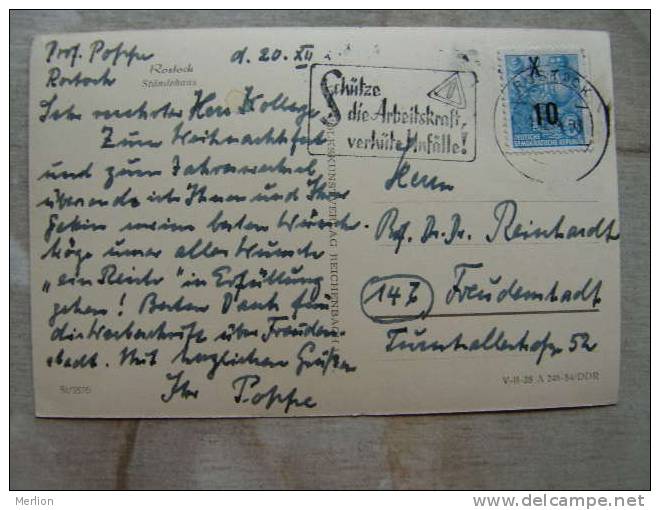 Prof. Poppe
Rostock
d. 20. XII
Rostock
Ständehaus
Sehr verehrter Herr Kollege
Zum Weihnachtsfest
und zum Jahreswechsel
übersende ich Ihnen und Ihrer
Gattin meine besten Wünsche
Möge unser aller Wunsch
„ein Reich" in Erfüllung
gehen! Besten Dank für
die Werbeschrift über Freuden-
stadt. Mit herzlichen Grüßen
Ihr Poppe
Schütze
die Arbeitskraft,
verhüte Unfälle!
X
10
DEUTSCHE
DEMOKRATISCHE REPUBLIK
ROSTOCK
Herrn
Prof. Dr. Dr. Reinhardt
14b Freudenstadt
Turnhallestraße 52
KUNSTVERLAG REICHENBACH
V-11-28 A 248-54/DDR
Merlion
www.delcampe.net